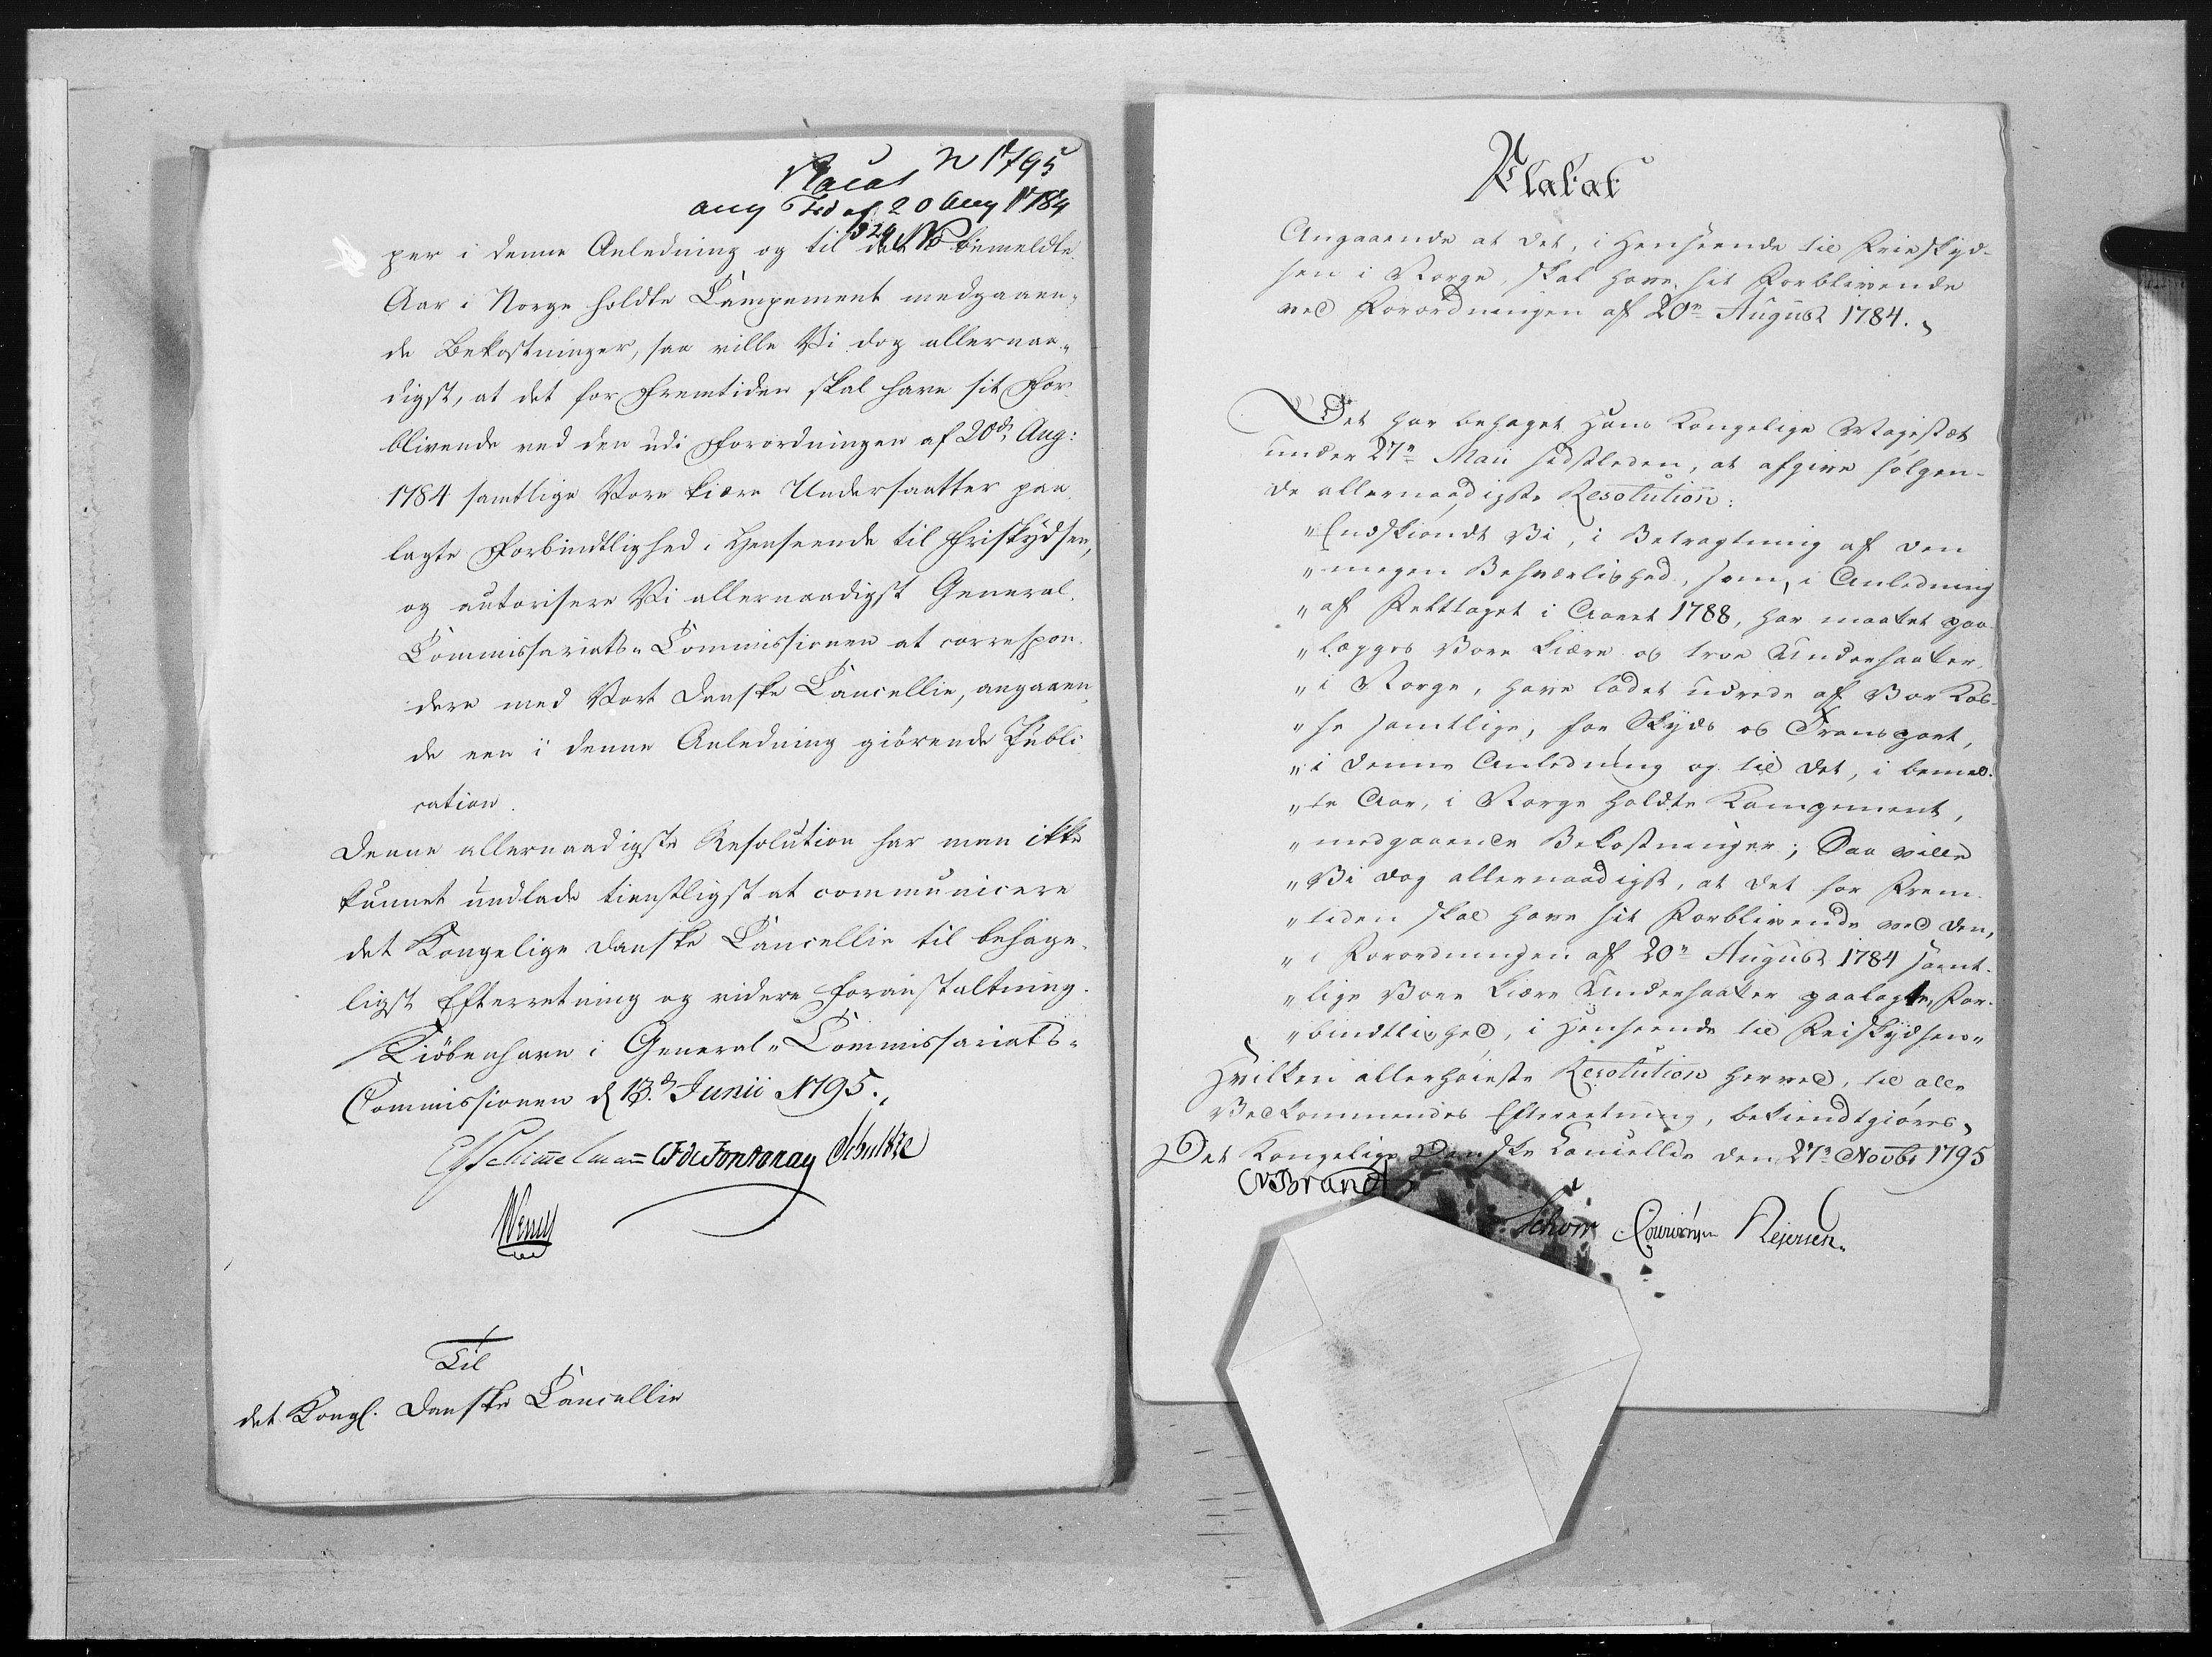 Placat N 1795
ang Frd af 20 Aug 1784
324
per i denne Anledning og til det bemeldte
Aar i Norge holdte Campement medgaaen¬
de Bekostninger, saa ville Vi dog allernaa¬
digst, at det for Fremtiden skal have sit For¬
blivende ved den udi Forordningen af 20de Aug:
1784 samtlige Vore kiære Undersaatter paa¬
lagte Forbindtlighed i Henseende til Friskydsen,
og autorisere Vi allernaadigst General-
Commissariats-Commissionen at correspon¬
dere med Vort Danske Cancellie, angaaen¬
de een i denne Anledning giørende Publi¬
cation.
Denne allernaadigste Resolution har man ikke
kunnet undlade tienstligst at communicere
det Kongelige Danske Cancellie til behage¬
ligst Efterretning og videre Foranstaltning.
Kiöbenhavn i General-Commissariats-
Commissionen d 13de Junii 1795.
ESchimmelmann CFdeFontenay Schultze
Wenck
Til
det Kongl. Danske Cancellie
Plakat
Angaaende at det, i Henseende til Frieskyd¬
sen i Norge, skal have sit Forblivende
ved Forordningen af 20n August 1784.
Det har behaget Hans Kongelige Majestæt
under 27n Maii sidstleden, at afgive følgen¬
de allernaadigste Resolution:
"Endskiondt Vi, i Betragtning af den
"megen Besværlighed, som, i Anledning
"af Felttoget i Aaret 1788, har maattet paa¬
"lægges Vore kiære og troe Undersaatter
"i Norge, have ladet udrede af Vor Kas¬
"se samtlige, for Skyds og Transport,
"i denne Anledning og til det, i bemeld¬
"te Aar, i Norge holdte Kampement,
"medgaaende Bekostninger; Saa ville
"Vi dog allernaadigst, at det for Frem¬
"tiden skal have sit Forblivende ved den,
"i Forordningen af 20n August 1784 samt¬
"lige Vore kiære Undersaatter paalagte, For¬
"bindtlighed, i Henseende til Friskydsen"
Hvilken allerhøieste Resolution herved, til alle
Vedkommendes Efterretning, bekiendtgiøres,
Det Kongelige Danske Cancellie den 27n Novbr 1795
CBrandt
Schow Rejersen